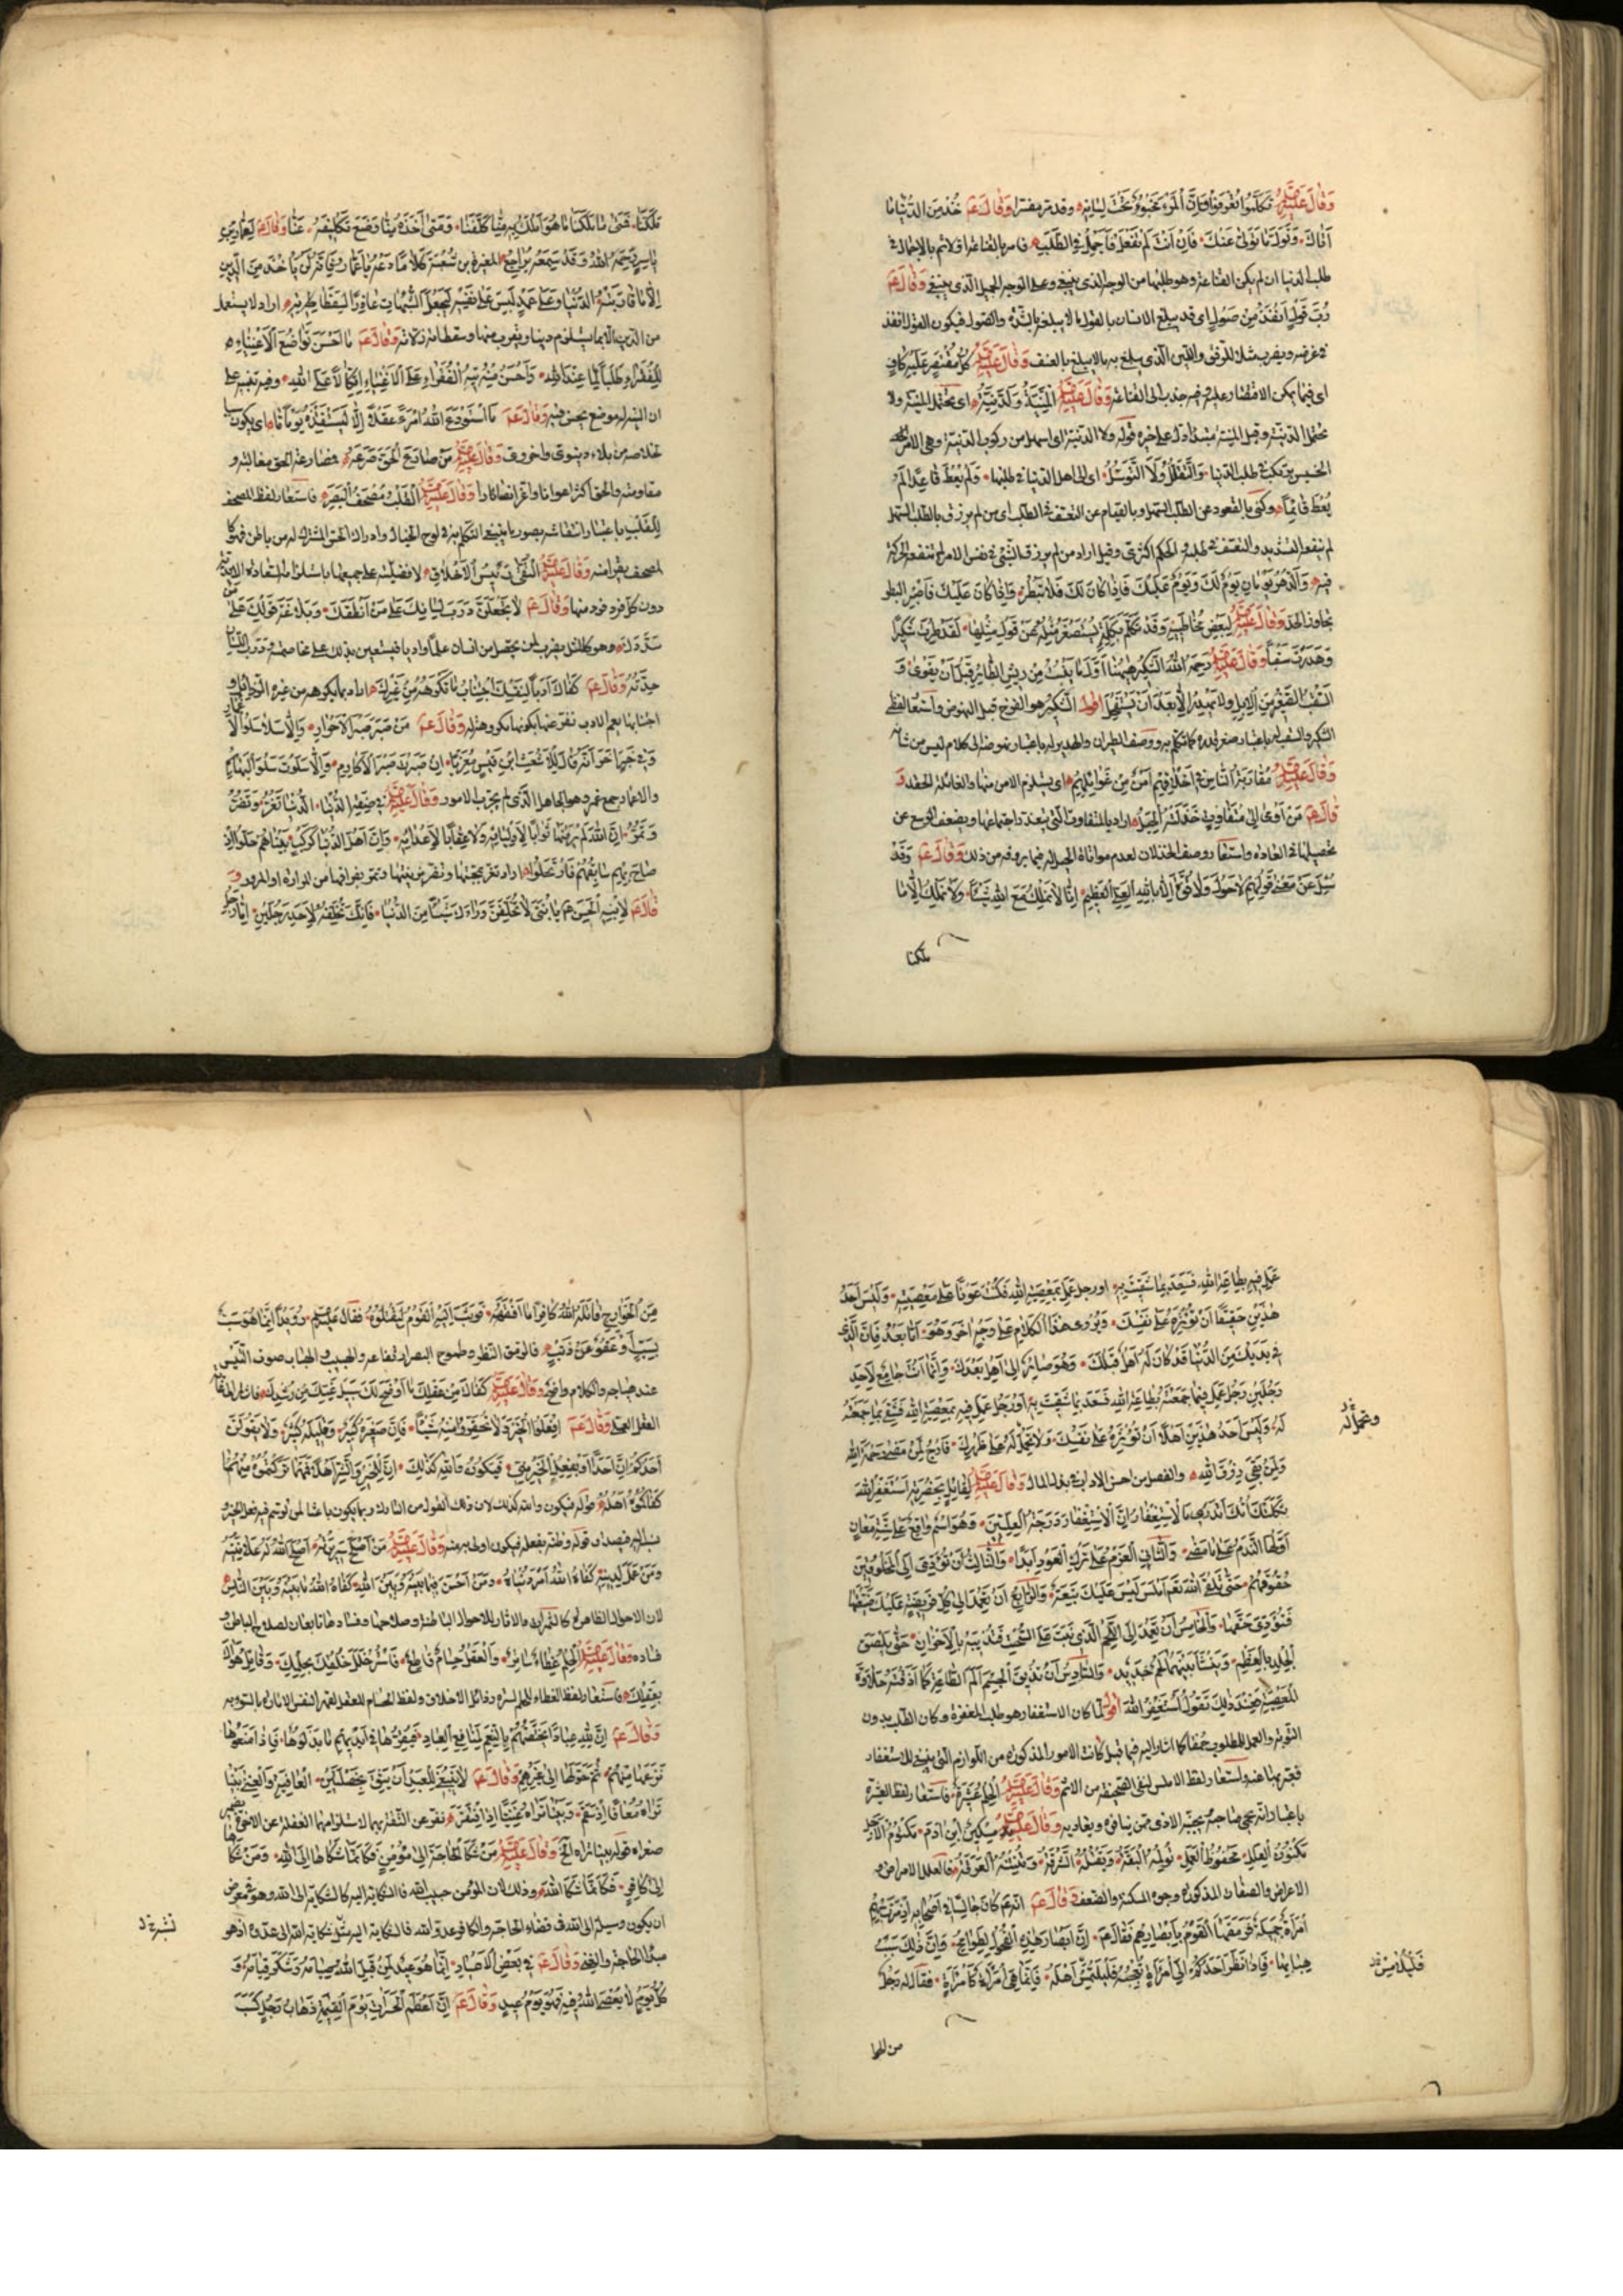 وَقَالَ عليه السلم تَكَلَّمُوا تُعْرَفُوا فَإِنَّ الْمَرْءَ مَخْبُوءٌ تَحْتَ لِسَانِهِ وقد مر مفسرا وَقَالَ عَم خُذْ مِنَ الدُّنْيَا مَا
أَتَاكَ وَتَوَلَّ مَا تَوَلَّى عَنْكَ فَإِنْ أَنْتَ لَمْ تَفْعَلْ فَأَجْمِلْ فِي الطَّلَبِ فامر بالقناعة اولا ثم بالاجمال في
طلب الدنيا ان لم يكن القناعة وهو طلبها من الوجه الذى ينبغى وعلى الوجه الجميل الذى ينبغى وَقَالَ عَم
رُبَّ قَوْلٍ أَنْفَذُ مِنْ صَوْلٍ اى قد يبلغ الانسان بالقول ما لا يبلغ بالشدة والصول فيكون القول انفذ
في غرضه ويضرب مثلا للرفق واللين الذى يبلغ به ما لا يبلغ بالعنف وَقَالَ عليه السلم كُلُّ مُقْتَصَرٍ عَلَيْهِ كَافٍ
اى فيما يمكن الاقتصار عليه وفيه جذب الى القناعة وَقَالَ عليه السلم الْمَنِيَّةُ وَلَا الدَّنِيَّةُ اى يحتمل المنية ولا
يحتمل الدنية وقيل المنية مبتدأ دل على خبره قوله ولا الدنية اى اسهل من ركوب الدنية وهى الامر
الخسيس يرتكب في طلب الدنيا وَالتَّقَلُّلُ وَلَا التَّوَسُّلُ اى الى اهل الدنيا في طلبها وَمَنْ لَمْ يُعْطَ قَاعِدًا لَمْ
يُعْطَ قَائِمًا وكنى بالقعود عن الطلب السهل وبالقيام عن التعسف في الطلب اى من لم يرزق بالطلب السهل
لم ينفعه التشديد والتعسف في طلبه والحكم اكثرى وقيل اراد من لم يرزق الشئ في نفس الامر لم تنفعه الحركة
فيه وَالدَّهْرُ يَوْمَانِ يَوْمٌ لَكَ وَيَوْمٌ عَلَيْكَ فَإِذَا كَانَ لَكَ فَلَا تَبْطَرْ وَإِذَا كَانَ عَلَيْكَ فَاصْبِرْ البطر
تجاوز الحد وَقَالَ عليه السلم لِبَعْضِ مُخَاطِبِيهِ وَقَدْ تَكَلَّمَ بِكَلِمَةٍ يُسْتَصْغَرُ مِثْلُهُ عَنْ قَوْلِ مِثْلِهَا لَقَدْ طِرْتَ شَكِيرًا
وَهَدَرْتَ سَقْبًا وَقَالَ عليه السلم رَحِمَهُ اللَّهُ الشَّكِيرُ هٰهُنَا أَوَّلُ مَا يَنْبُتُ مِنْ رِيشِ الطَّائِرِ قَبْلَ أَنْ يَقْوَى وَ
السَّقْبُ الصَّغِيرُ مِنَ الْإِبِلِ وَلَا يَهْدِرُ إِلَّا بَعْدَ أَنْ يَسْتَفْحِلَ اقول الشكير هو الفرخ قبل النهوض واستعار لفظ
الشكير والسقب له باعتبار صغر قدره كما تكلم به ووصف الطيران والهدير له باعتبار نهوضه الى كلام ليس من شأنه
وَقَالَ عليه السلم مُقَارَبَةُ النَّاسِ فِي أَخْلَاقِهِمْ أَمْنٌ مِنْ غَوَائِلِهِمْ اى يستلزم الامن منها والغائلة الحقد وَ
قَالَ عَم مَنْ أَوْمَى إِلَى مُتَفَاوِتٍ خَذَلَتْهُ الْحِيَلُ اراد بالمتفاوت التى يبعد اجتماعها ويضعف الوسع عن
تحصيلها في العادة واستعار وصف الخذلان لعدم مواتاة الحيل له فيما يرومه من ذلك وَقَالَ عَم وَقَدْ
سُئِلَ عَنْ مَعْنَى قَوْلِهِمْ لَا حَوْلَ وَلَا قُوَّةَ إِلَّا بِاللَّهِ الْعَلِيِّ الْعَظِيمِ إِنَّا لَا نَمْلِكُ مَعَ اللَّهِ شَيْئًا وَلَا نَمْلِكُ إِلَّا مَا
ملكنا
مَلَّكَنَا فَمَتَى مَا مَلَّكَنَا مَا هُوَ أَمْلَكُ بِهِ مِنَّا كَلَّفَنَا وَمَتَى أَخَذَهُ مِنَّا وَضَعَ تَكْلِيفَهُ عَنَّا وَقَالَ عَم لِعَمَّارِ بْنِ
يَاسِرٍ رَحِمَهُ اللَّهُ وَقَدْ سَمِعَهُ يُرَاجِعُ الْمُغِيرَةَ بْنَ شُعْبَةَ كَلَامًا دَعْهُ يَا عَمَّارُ فَإِنَّهُ لَنْ يَأْخُذَ مِنَ الدِّينِ
إِلَّا مَا قَارَبَتْهُ الدُّنْيَا وَعَلَى عَمْدٍ لَبَّسَ عَلَى نَفْسِهِ لِيَجْعَلَ الشُّبُهَاتِ عَاذِرًا لِسَقَطَاتِهِ اراد لا يستعمل
من الدين الا ما يستلزم دنيا ويقرب منها وسقطاته زلاته وَقَالَ عَم مَا أَحْسَنَ تَوَاضُعَ الْأَغْنِيَاءِ
لِلْفُقَرَاءِ طَلَبًا لِمَا عِنْدَ اللَّهِ وَأَحْسَنُ مِنْهُ تِيهُ الْفُقَرَاءِ عَلَى الْأَغْنِيَاءِ اتِّكَالًا عَلَى اللَّهِ وفيه تنبيه على
ان التيه له موضع يحسن فيه وَقَالَ عَم مَا اسْتَوْدَعَ اللَّهُ امْرَءًا عَقْلًا إِلَّا لِيَسْتَنْقِذَهُ يَوْمًا مَا اى يكون سببا
لخلاصه من بلاء دنيوى او اخروى وَقَالَ عليه السلم مَنْ صَارَعَ الْحَقَّ صَرَعَهُ مصارعة الحق مغالبته و
مقاومته والحق اكثر اعوانا واعز انصارا وَقَالَ عليه السلم الْقَلْبُ مُصْحَفُ الْبَصَرِ فاستعار لفظ المصحف
لِلقلب باعتبار انتقاشه بصور ما ينبغى التكلم به في لوح الخيال وادراك الحس المشترك له من باطن فهو كا
لمصحف يقرأ منه وَقَالَ عليه السلم التُّقَى رَئِيسُ الْأَخْلَاقِ لافضليته على جميعها باستلزامه السعادة الابدية
دون كل فرد فرد منها وَقَالَ عَم لَا تَجْعَلَنَّ ذَرَبَ لِسَانِكَ عَلَى مَنْ أَنْطَقَكَ وَبَلَاغَةَ قَوْلِكَ عَلَى مَنْ
سَدَّدَكَ وهو كالمثل يضرب لمن يحصل من انسان علما وادبا فيستعين بذلك على مخاصمته وذرب اللسان
حِدّته وَقَالَ عَم كَفَاكَ أَدَبًا لِنَفْسِكَ اجْتِنَابُ مَا تَكْرَهُهُ مِنْ غَيْرِكَ اراد ما يكرهه من غيره الرذائل و
اجتنابها نعم الادب نفّر عنها بكونها مكروهة له وَقَالَ عَم مَنْ صَبَرَ صَبْرَ الْأَحْرَارِ وَإِلَّا سَلَا سُلُوَّ الْأَغْمَارِ
وَفِي خَبَرٍ آخَرَ أَنَّهُ قَالَ لِلْأَشْعَثِ ابْنِ قَيْسٍ مُعَزِّيًا إِنْ صَبَرْتَ صَبْرَ الْأَكَارِمِ وَإِلَّا سَلَوْتَ سُلُوَّ الْبَهَائِمِ
والاغمار جمع غمر وهو الجاهل الذى لم يجرب الامور وَقَالَ عليه السلم فِي صِفَةِ الدُّنْيَا الدُّنْيَا تَغُرُّ وَتَضُرُّ
وَتَمُرُّ إِنَّ اللَّهَ لَمْ يَرْضَهَا ثَوَابًا لِأَوْلِيَائِهِ وَلَا عِقَابًا لِأَعْدَائِهِ وَإِنَّ أَهْلَ الدُّنْيَا كَرَكْبٍ بَيْنَا هُمْ حَلُّوا إِذْ
صَاحَ بِهِمْ سَائِقُهُمْ فَارْتَحَلُوا اراد تغر بمحبتها وتضر بزينتها وتمر بفراقها من المرارة او المرور وَ
قَالَ عَم لِابْنِهِ الْحَسَنِ عم يَا بُنَيَّ لَا تُخَلِّفَنَّ وَرَاءَكَ شَيْئًا مِنَ الدُّنْيَا فَإِنَّكَ تُخَلِّفُهُ لِأَحَدِ رَجُلَيْنِ إِمَّا رَجُلٌ
عَمِلَ فِيهِ بِطَاعَةِ اللَّهِ فَسَعِدَ بِمَا شَقِيتَ بِهِ او رجل عَمِلَ بِمَعْصِيَةِ اللَّهِ فَكُنْتَ عَوْنًا عَلَى مَعْصِيَتِهِ وَلَيْسَ أَحَدُ
هٰذَيْنِ حَقِيقًا أَنْ تُؤْثِرَهُ عَلَى نَفْسِكَ وَيُرْوَى هٰذَا الْكَلَامُ عَلَى وَجْهٍ آخَرَ وَهُوَ أَمَّا بَعْدُ فَإِنَّ الَّذِي
فِي يَدَيْكَ مِنَ الدُّنْيَا قَدْ كَانَ لَهُ أَهْلٌ قَبْلَكَ وَهُوَ صَائِرٌ إِلَى أَهْلٍ بَعْدَكَ وَإِنَّمَا أَنْتَ جَامِعٌ لِأَحَدِ
رَجُلَيْنِ رَجُلٍ عَمِلَ فِيمَا جَمَعْتَهُ بِطَاعَةِ اللَّهِ فَسَعِدَ بِمَا شَقِيتَ بِهِ أَوْ رَجُلٍ عَمِلَ فِيهِ بِمَعْصِيَةِ اللَّهِ فَشَقِيَ بِمَا جَمَعْتَ
لَهُ وَلَيْسَ أَحَدُ هٰذَيْنِ أَهْلًا أَنْ تُؤْثِرَهُ عَلَى نَفْسِكَ وَلَا تَحْمِلَ لَهُ عَلَى ظَهْرِكَ فَارْجُ لِمَنْ مَضَى رَحْمَةَ اللَّهِ
وَلِمَنْ بَقِيَ رِزْقَ اللَّهِ والفصل من احسن الاداب في بذل المال وَقَالَ عليه السلم لِقَائِلٍ بِحَضْرَتِهِ أَسْتَغْفِرُ اللَّهَ
ثَكِلَتْكَ أُمُّكَ أَتَدْرِي مَا الْاِسْتِغْفَارُ إِنَّ الْاِسْتِغْفَارَ دَرَجَةُ الْعِلِّيِّينَ وَهُوَ اسْمٌ وَاقِعٌ عَلَى سِتَّةِ مَعَانٍ
أَوَّلُهَا النَّدَمُ عَلَى مَا مَضَى وَالثَّانِي الْعَزْمُ عَلَى تَرْكِ الْعَوْدِ أَبَدًا وَالثَّالِثُ أَنْ تُؤَدِّيَ إِلَى الْمَخْلُوقِينَ
حُقُوقَهُمْ حَتَّى تَلْقَى اللَّهَ أَمْلَسَ لَيْسَ عَلَيْكَ تَبِعَةٌ وَالرَّابِعُ أَنْ تَعْمِدَ إِلَى كُلِّ فَرِيضَةٍ عَلَيْكَ ضَيَّعْتَهَا
فَتُؤَدِّيَ حَقَّهَا وَالْخَامِسُ أَنْ تَعْمِدَ إِلَى اللَّحْمِ الَّذِي نَبَتَ عَلَى السُّحْتِ فَتُذِيبَهُ بِالْأَحْزَانِ حَتَّى يَلْصَقَ
الْجِلْدُ بِالْعَظْمِ وَيَنْشَأَ بَيْنَهُمَا لَحْمٌ جَدِيدٌ وَالسَّادِسُ أَنْ تُذِيقَ الْجِسْمَ أَلَمَ الطَّاعَةِ كَمَا أَذَقْتَهُ حَلَاوَةَ
الْمَعْصِيَةِ فَعِنْدَ ذٰلِكَ تَقُولُ أَسْتَغْفِرُ اللَّهَ اقول لما كان الاستغفار هو طلب المغفرة وكان الطلب بدون
التوبة والعمل للمطلوب حمقا كما اشار اليه فيما قبل كانت الامور المذكورة من اللوازم التى ينبغى للاستغفار
فعبّر بها عنه واستعار لفظ الاملس لنقى الصحيفة من الاثم وَقَالَ عليه السلم الْحِلْمُ عَشِيرَةٌ فاستعار لفظ العشيرة
باعتبار انه يحمى صاحبه بجنبه الاذى ممن ينافره ويعاديه وَقَالَ عليه السلم مِسْكِينٌ ابْنُ آدَمَ مَكْتُومُ الْأَجَلِ
مَكْنُونُ الْعِلَلِ مَحْفُوظُ الْعَمَلِ تُؤْلِمُهُ الْبَقَّةُ وَتَقْتُلُهُ الشَّرْقَةُ وَتُنْتِنُهُ الْعَرْقَةُ فالعلل الامراض و
الاعراض والصفات المذكورة وجوه المسكنة والضعف وَقَالَ عَم انه عم كَانَ جَالِسًا فِي أَصْحَابِهِ إِذْ مَرَّتْ بِهِمُ
امْرَأَةٌ جَمِيلَةٌ فَرَمَقَهَا الْقَوْمُ بِأَبْصَارِهِمْ فَقَالَ عَم إِنَّ أَبْصَارَ هٰذِهِ الْفُحُولِ طَوَامِحُ وَإِنَّ ذٰلِكَ سَبَبُ
هِبَابِهَا فَإِذَا نَظَرَ أَحَدُكُمْ إِلَى امْرَأَةٍ تُعْجِبُهُ فَلْيَلْتَمِسْ أَهْلَهُ فَإِنَّمَا هِيَ امْرَأَةٌ كَامْرَأَةٍ فقال له رجل
وتحمل له
فَلْيُلَامِسْ
من الخوا
مِنَ الْخَوَارِجِ قَاتَلَهُ اللَّهُ كَافِرًا مَا أَفْقَهَهُ فَوَثَبَ إِلَيْهِ الْقَوْمُ لِيَقْتُلُوهُ فقال عليه السلم رُوَيْدًا إِنَّمَا هُوَ سَبٌّ
بِسَبٍّ أَوْ عَفْوٌ عَنْ ذَنْبٍ فالرمق النظر وطموح البصر ارتفاعه والهبيب والهباب صوت التيس
عند هياجه والكلام واضح وَقَالَ عليه السلم كَفَاكَ مِنْ عَقْلِكَ مَا أَوْضَحَ لَكَ سَبِيلَ غَيِّكَ مِنْ رُشْدِكَ
العقل العملى وَقَالَ عَم افْعَلُوا الْخَيْرَ وَلَا تَحْقِرُوا مِنْهُ شَيْئًا فَإِنَّ صَغِيرَهُ كَبِيرٌ وَقَلِيلَهُ كَثِيرٌ وَلَا يَقُولَنَّ
أَحَدُكُمْ إِنَّ أَحَدًا أَوْلَى بِفِعْلِ الْخَيْرِ مِنِّي فَيَكُونُ وَاللَّهِ كَذٰلِكَ إِنَّ لِلْخَيْرِ وَالشَّرِّ أَهْلًا فَمَهْمَا تَرَكْتُمُوهُ مِنْهُمَا
كَفَاكُمُوهُ أَهْلُهُ قوله فيكون والله كذلك لان ذلك القول من التارك ربما يكون باعثا لمن توسم فيه فعل الخير و
نسب اليه فيصدق قوله وظنه بفعله فيكون اولى به منه وَقَالَ عليه السلم مَنْ أَصْلَحَ سَرِيرَتَهُ أَصْلَحَ اللَّهُ لَهُ عَلَانِيَتَهُ
وَمَنْ عَمِلَ لِدِينِهِ كَفَاهُ اللَّهُ أَمْرَ دُنْيَاهُ وَمَنْ أَحْسَنَ فِيمَا بَيْنَهُ وَبَيْنَ اللَّهِ كَفَاهُ اللَّهُ مَا بَيْنَهُ وَبَيْنَ النَّاسِ
لان الاحوال الظاهرة كالثمرات والاثار للاحوال الباطنة وصلاحها وفسادها تابعان لصلاح الباطن و
فساده وَقَالَ عليه السلم الْحِلْمُ غِطَاءٌ سَاتِرٌ وَالْعَقْلُ حُسَامٌ قَاطِعٌ فَاسْتُرْ خَلَلَ خُلُقِكَ بِحِلْمِكَ وَقَاتِلْ هَوَاكَ
بِعَقْلِكَ فاستعار لفظ الغطاء للحلم لستره رذائل الاخلاق ولفظ الحسام للعقل لقهره النفس الامارة بالسوء به
وَقَالَ عَم إِنَّ لِلَّهِ عِبَادًا يَخْتَصُّهُمْ بِالنِّعَمِ لِمَنَافِعِ الْعِبَادِ فَيُقِرُّهَا فِي أَيْدِيهِمْ مَا بَذَلُوهَا فَإِذَا مَنَعُوهَا
نَزَعَهَا مِنْهُمْ ثُمَّ حَوَّلَهَا إِلَى غَيْرِهِمْ وَقَالَ عَم لَا يَنْبَغِي لِلْعَبْدِ أَنْ يَثِقَ بِخَصْلَتَيْنِ الْعَافِيَةِ وَالْغِنَى بَيْنَا
تَرَاهُ مُعَافًى إِذْ سَقِمَ وَبَيْنَا تَرَاهُ غَنِيًّا إِذِ افْتَقَرَ نفّر عن الثقة بهما لاستلزامهما الغفلة عن الاخرة
صغراه قوله بينا تراه الخ وَقَالَ عليه السلم مَنْ شَكَا الْحَاجَةَ إِلَى مُؤْمِنٍ فَكَأَنَّمَا شَكَاهَا إِلَى اللَّهِ وَمَنْ شَكَا
إِلَى كَافِرٍ فَكَأَنَّمَا شَكَا اللَّهَ وذلك لان المؤمن حبيب الله فالشكاية اليه كالشكاية الى الله وهو في معرض
ان يكون وسيلة الى الله في قضاء الحاجة والكافر عدو الله فالشكاية اليه مثل شكاية الله الى عدوه اذ هو
مبدأ الحاجة والغنى وَقَالَ عَم فِي بَعْضِ الْأَعْيَادِ إِنَّمَا هُوَ عِيدٌ لِمَنْ قَبِلَ اللَّهُ صِيَامَهُ وَشَكَرَ قِيَامَهُ وَ
كُلُّ يَوْمٍ لَا يُعْصَى اللَّهُ فِيهِ فَهُوَ يَوْمُ عِيدٍ وَقَالَ عَم إِنَّ أَعْظَمَ الْحَسَرَاتِ يَوْمَ الْقِيٰمَةِ رَجُلٍ كَسَبَ